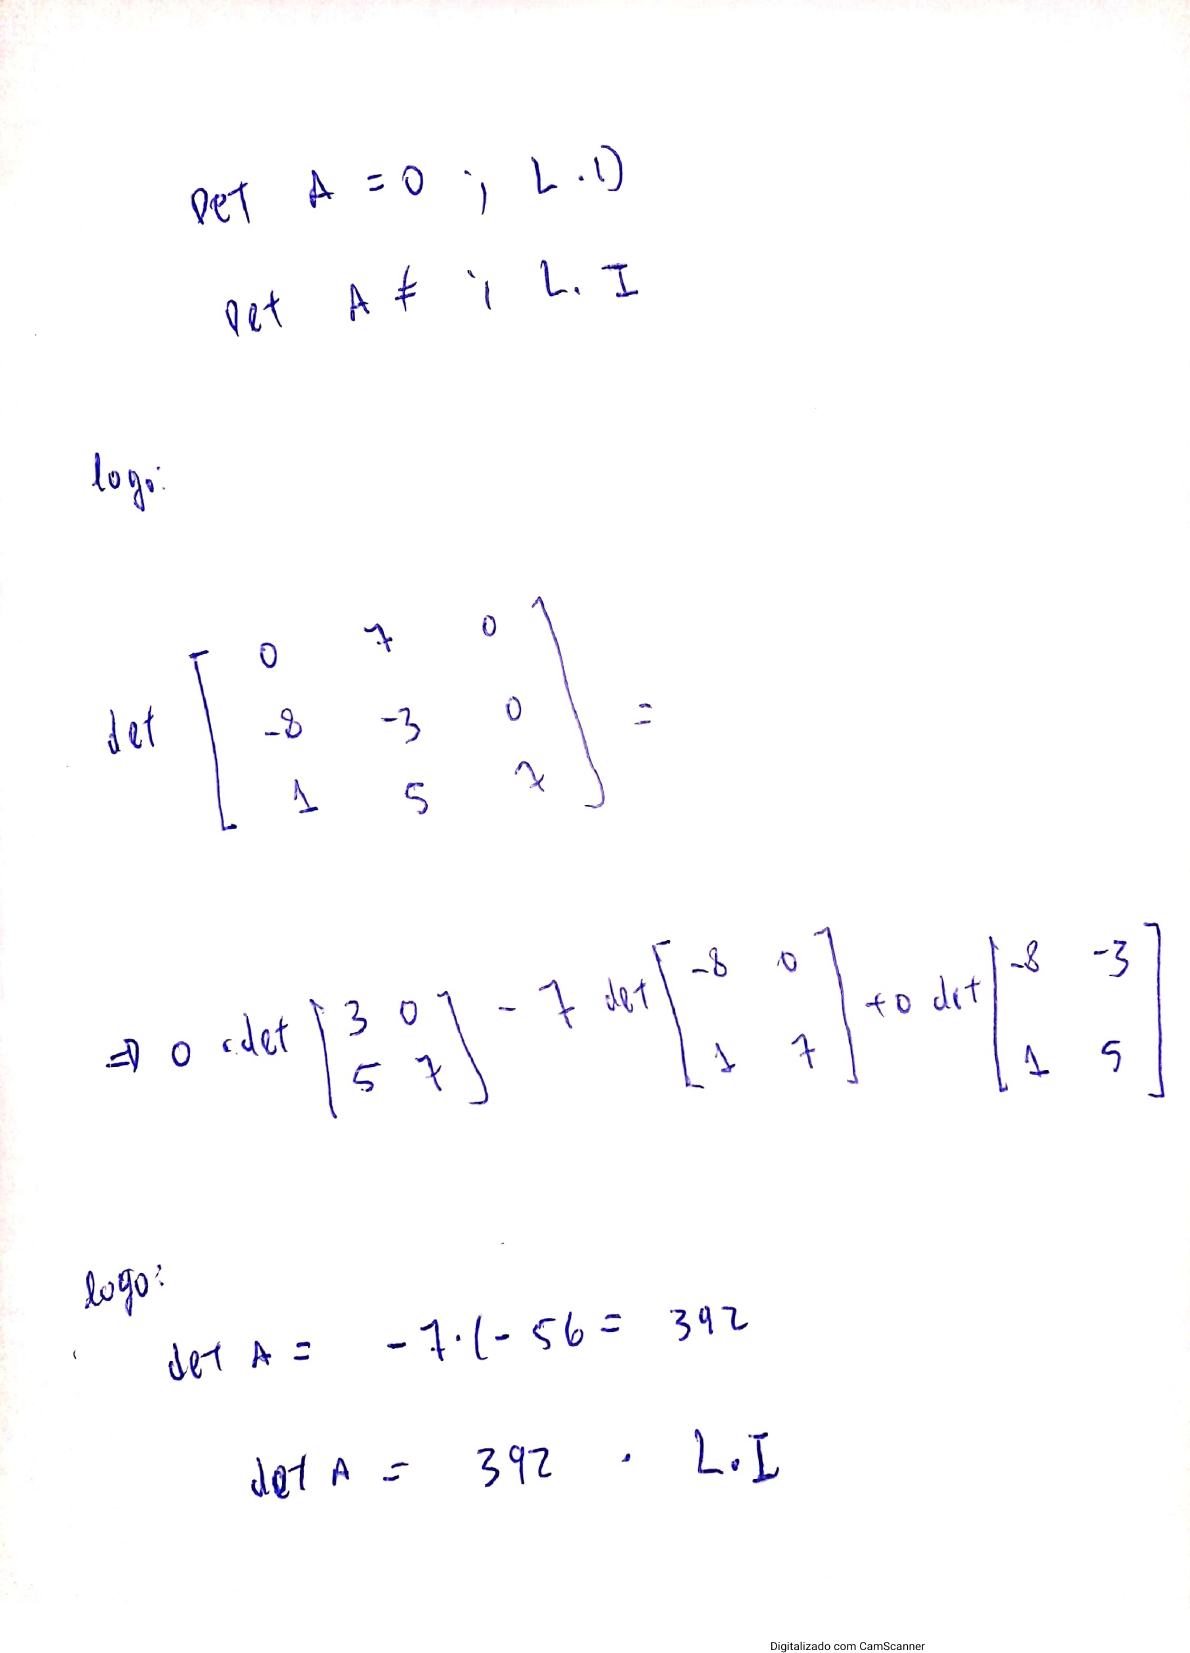 Det A = 0 ; L.D
Det A ≠ ; L.I
logo:
0 7 0
det -8 -3 0 =
1 5 7
⇒ 0 . det [3 0 - 7 det [-8 0] + 0 det [-8 -3]
5 7] 1 7 1 5
logo:
det A = - 7 . (- 56 = 392
det A = 392 . L.I
Digitalizado com CamScanner